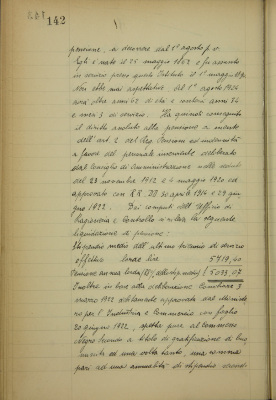 142
pensione, a decorrere dal 1° agosto p.v.
Egli è nato il 25 maggio 1862 e fu assunto
in servizio presso questo Istituto il 1° maggio
Non ebbe mai aspettative. Al 1° agosto 1924
avrà oltre anni 62 di età e conterà anni 34
e mesi 3 di servizio. Ha quindi conseguito
il diritto assoluto alla pensione a mente
dell'art. 2 del Reg. Pensioni ed indennità
a favore del personale inventariale deliberato
dal Consiglio di Amministrazione nelle sedute
del 23 novembre 1912 e 6 maggio 1920 ed
approvato con RR. DD. 30 aprile 1914 e 29 giu
gno 1922. Dai computi dell'Ufficio di
Ragioneria e Controllo risulta la seguente
liquidazione di pensione:
Stipendio medio dell'ultimo triennio di servizio
effettivo lorde lire 5719,40
Pensione annua lorda 5033,07
Inoltre in base alla deliberazione Comitato 9
marzo 1922 debitamente approvata dal Ministe
ro per l'Industria e Commercio con foglio
20 giugno 1922, spetta pure al commesso
Negro Secondo a titolo di gratificazione di buo
nuscita ed una volta tanto, una somma
pari ad una annualità di stipendio